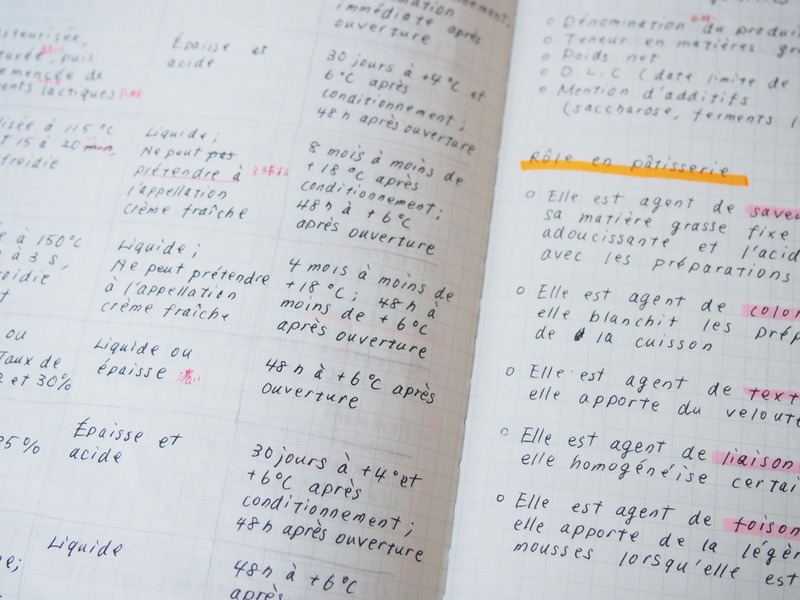 immédiate après
ouverture
Épaisse et
acide
30 jours à +4°C et
6°C après
conditionnement;
48h après ouverture
lisée à 115°C
t 15 à 20 min,
froidie
Liquide;
Ne peut pas
prétendre à
l'appellation
crème fraîche
8 mois à moins de
+18°C après
conditionnement;
48h à +6°C
après ouverture
e à 150°C
à 3 s,
roidie
t
Liquide;
Ne peut prétendre
à l'appellation
crème fraîche
4 mois à moins de
+18°C; 48h à
moins de +6°C
après ouverture
ou
Taux de
et 30%
Liquide ou
épaisse 濃い
48h à +6°C après
ouverture
35%
Épaisse et
acide
30 jours à +4° et
+6°C après
conditionnement;
48h après ouverture
e;
Liquide
48h à +6°C
après
o Dénomination du produi
o Teneur en matières gra
o Poids net
o D.L.C (date limite de
o Mention d'additifs
(saccharose, ferments l
Rôle en pâtisserie
o Elle est agent de saveu
sa matière grasse fixe
adoucissante et l'acid
avec les préparations
o Elle est agent de color
elle blanchit les prép
de la cuisson
o Elle est agent de text
elle apporte du velouté
o Elle est agent de liaison
elle homogénéise certai
o Elle est agent de foison
elle apporte de la légèr
mousses lorsqu'elle est